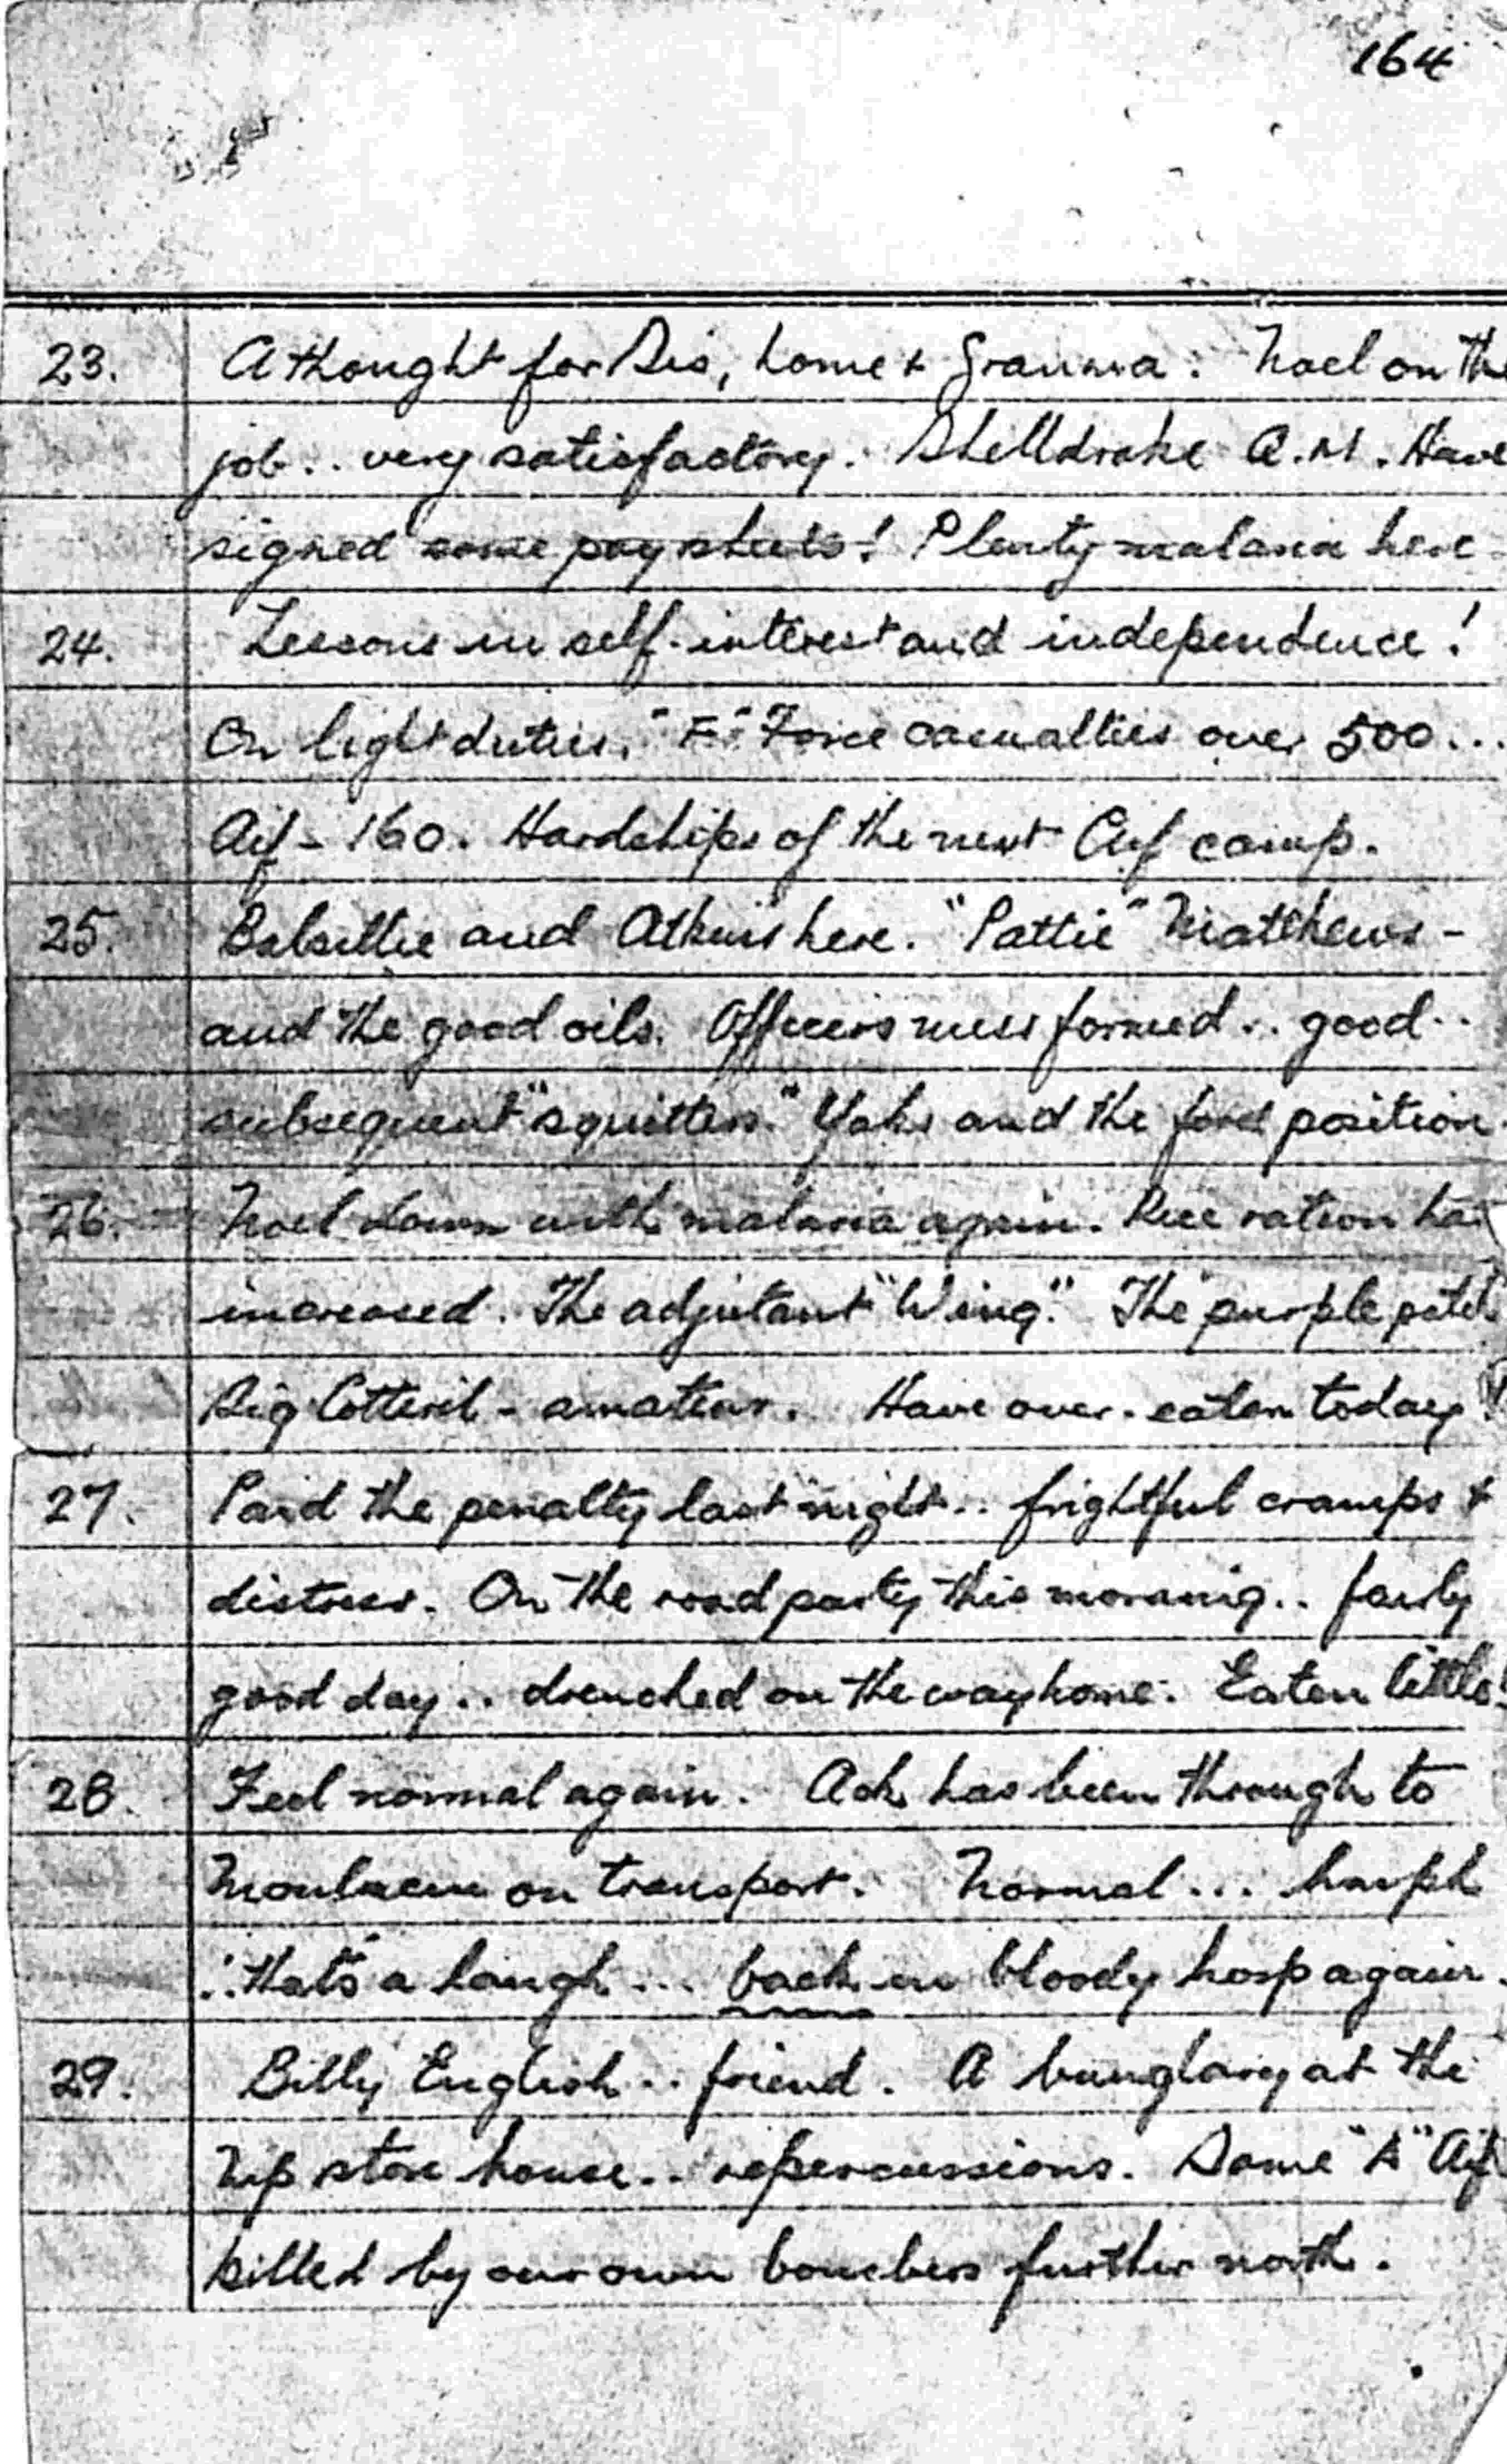 164
23. A thought for Sis, home & Granma. Noel on the
job.. very satisfactory. Shelldrake A.M. Have
signed some pay sheets! Plenty malaria here.
24. Lessons in self-interest and independence!
On light duties. "F" Force casualties over 500...
Aif - 160. Hardships of the next Aif camp.
25. Balsillie and Atkins here. "Pattie" Matthews -
and the good oils. Officers mess formed.. good..
subsequent "squitters." Yaks and the food position.
26. Noel down with malaria again. Rice ration has
increased. The adjutant "Wing." The purple patch
Sig Cotteril - amateur. Have over-eaten today!
27. Paid the penalty last night.. frightful cramps &
distress. On the road party this morning.. fairly
good day.. drenched on the way home. Eaten little!
28. Feel normal again. Ack has been through to
Moulmein on transport. Normal... humph
.. "that's" a laugh... back in bloody hosp again.
29. Billy English.. friend. A burglary at the
Nip store house.. repercussions. Some "A" Aif
killed by our own bombers further north.